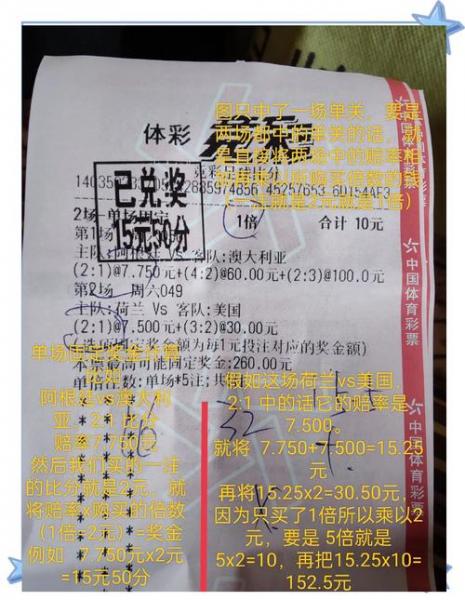 图只中了一场单关，要是
两场都中的单关的话，就
是直接将两场中的赔率相
体彩
竞彩足球比分
已兑奖
15元50分
2场-单场固定
1倍
合计 10元
第1场
主队:阿根廷 Vs 客队:澳大利亚
(2:1)@7.750元+(4:2)@60.00元+(2:3)@100.0元
第2场 周六049
主队:荷兰 Vs 客队:美国
(2:1)@7.500元+(3:2)@30.00元
(选项固定奖金额为每1元投注对应的奖金额)
本票最高可能固定奖金:260.00元
单倍注数:单场*5注;共
中国体育彩票
中国体育彩票
单场固定奖金计算
阿根廷vs澳大利
亚 2:1 比分
赔率7.750元
然后我们买的一注
的比分就是2元，就
将赔率x购买的倍数
（1倍=2元）=奖金
例如 7.750元x2元
=15元50分
假如这场荷兰vs美国.
2:1 中的话它的赔率是
7.500。
就将 7.750+7.500=15.25
元
再将15.25x2=30.50元，
因为只买了1倍所以乘以2
元，要是 5倍就是
5x2=10，再把15.25x10=
152.5元